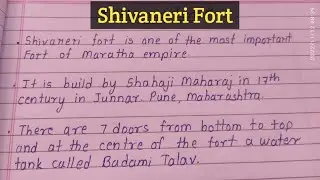 Shivaneri Fort
. Shivaneri fort is one of the most important
Fort of Maratha empire
. It is build by Shahaji Maharaj in 17th
century in Junnar Pune, Maharashtra.
. There are 7 doors from bottom to top
and at the centre of the fort a water
tank called Badami Talav.